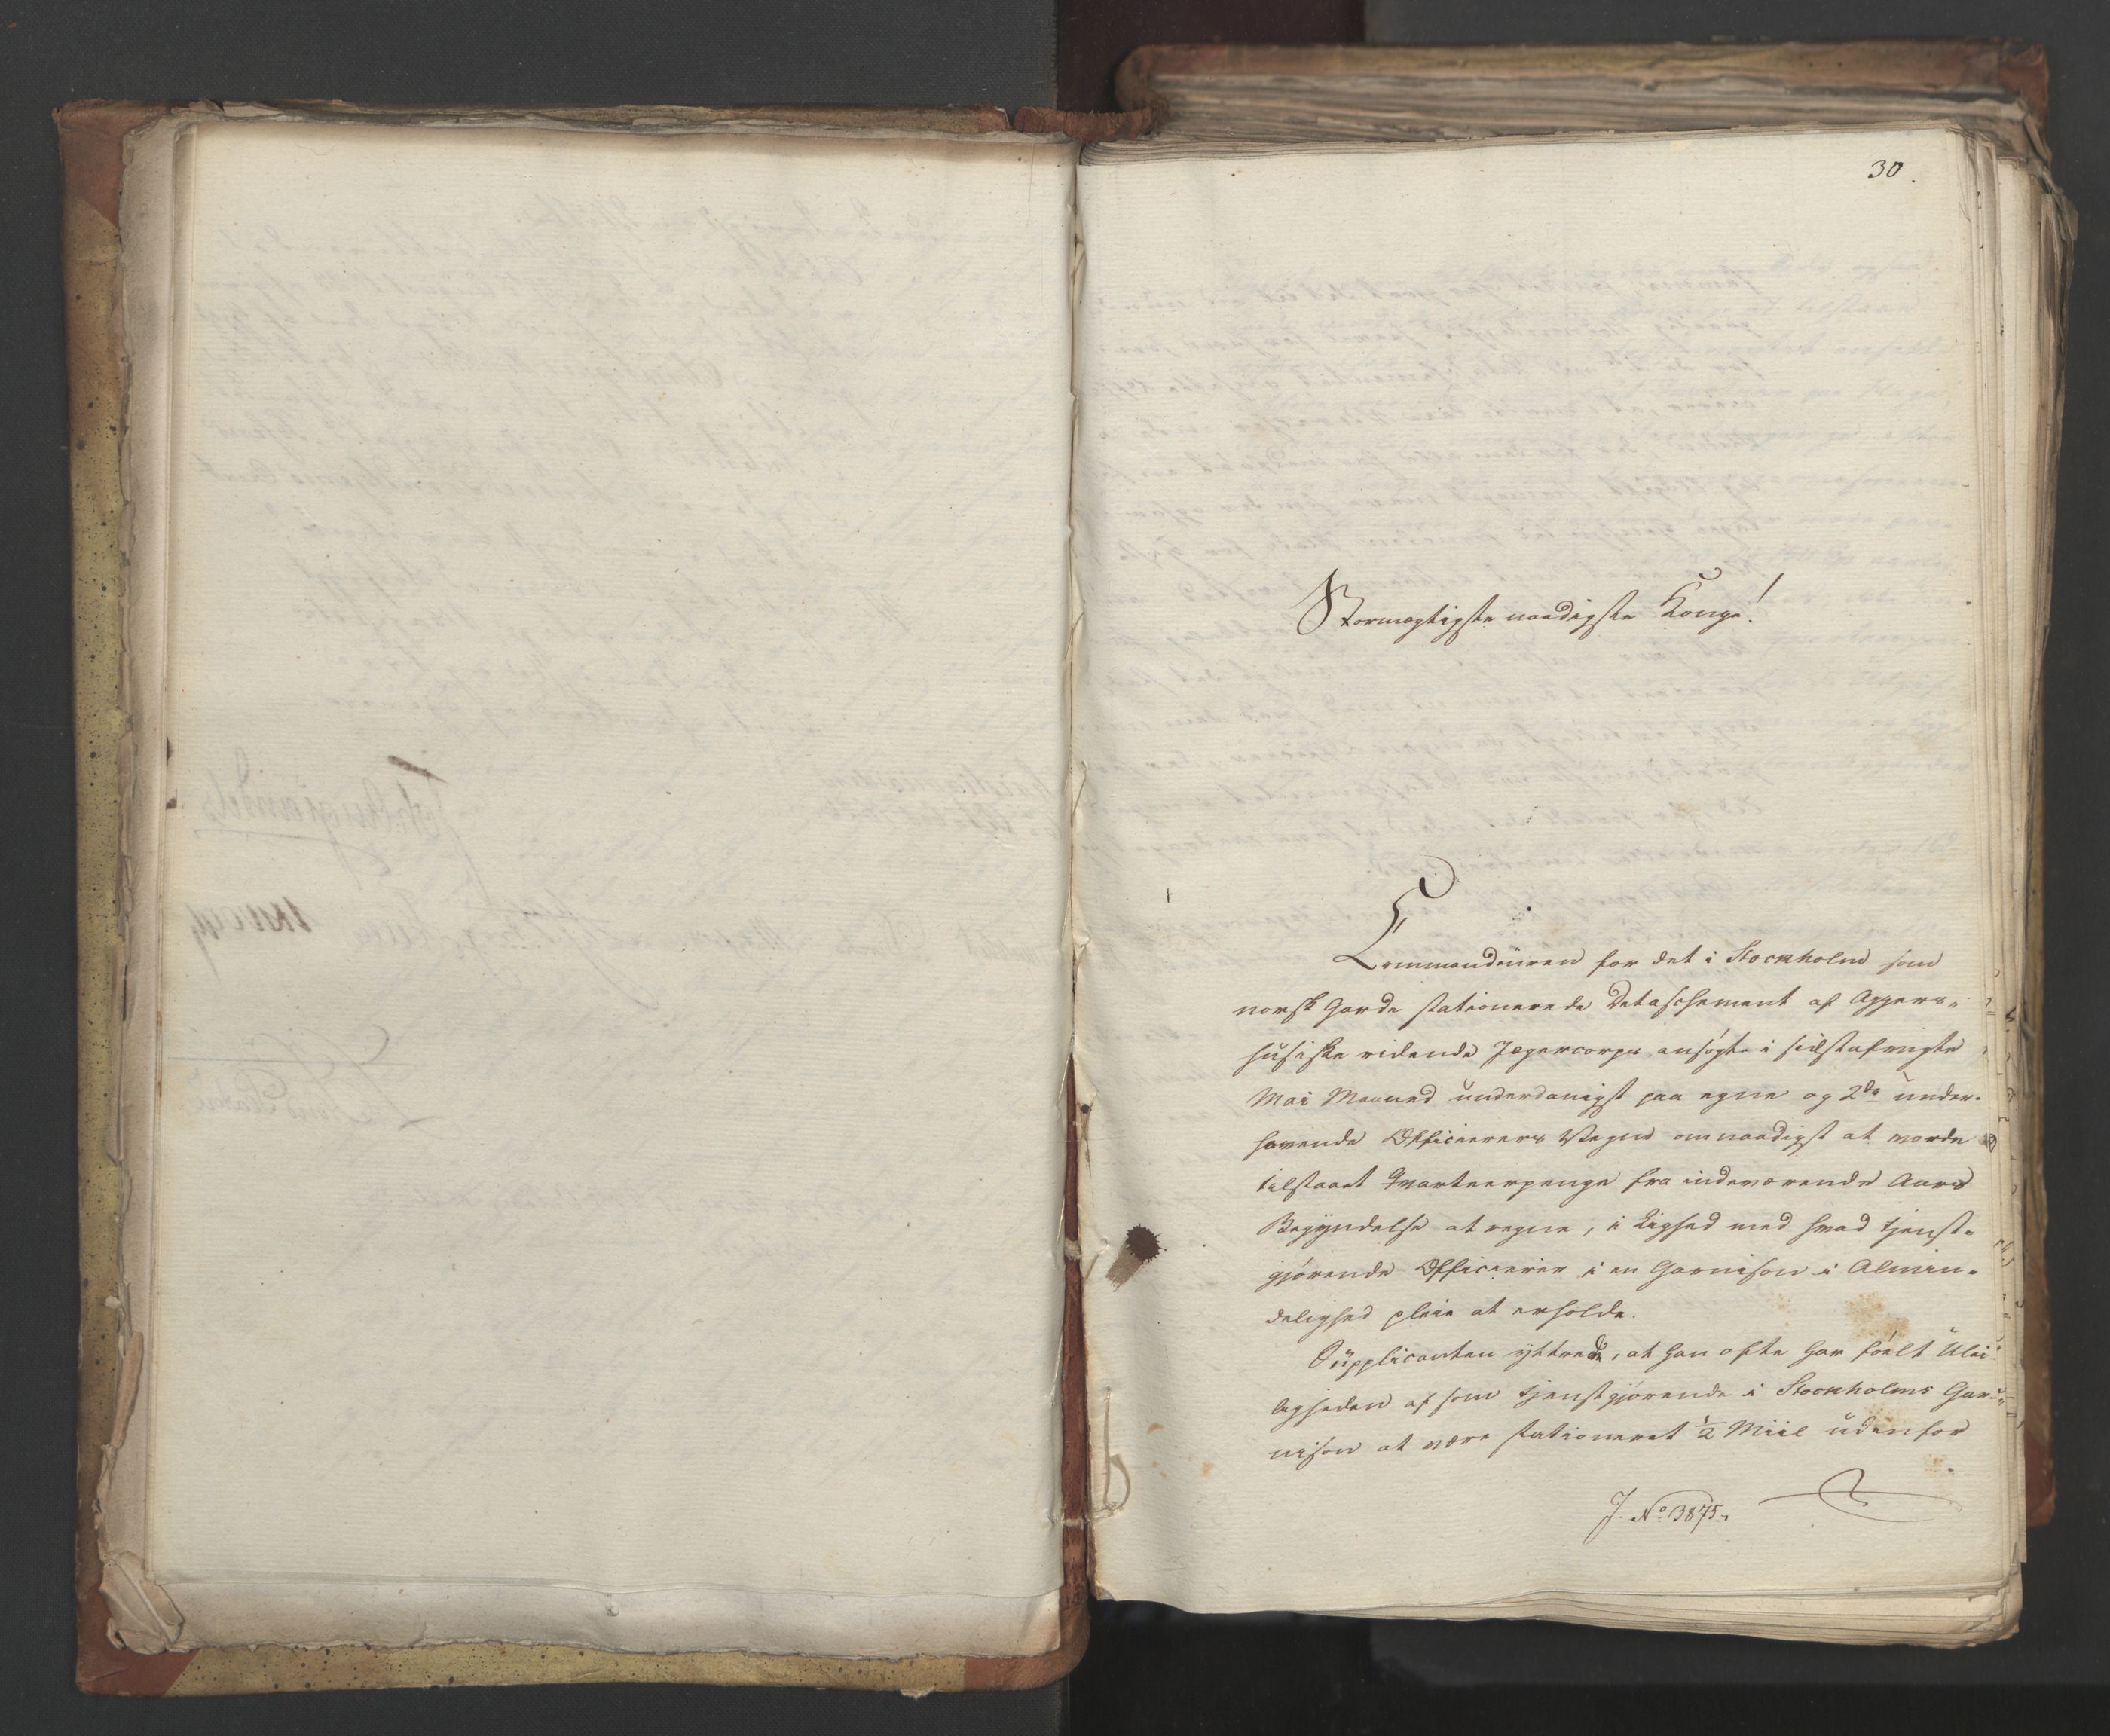 30.
Stormægtigste naadigste Konge!
Commandeuren for det i Stockholm som
norsk Garde stationerede Detaschement af Aggers-
husiske ridende Jægercorps ansøgte i sidstafvigte
Mai Maaned underdanigst paa egne og 2de under-
havende Officierers Vegne om naadigst at vorde
tilstaaet Qvarteerpenge fra indeværende Aars
Begyndelse at regne, i Liighed med hvad tjenst-
gjørende Officierer i en Garnison i Almin-
delighed pleie at erholde.
Supplicanten yttrede, at han ofte har følt Ulei-
ligheden af som tjenstgjørende i Stockholms Gar-
nison at være stationeret 1/2 Miil udenfor
J. No 3875.